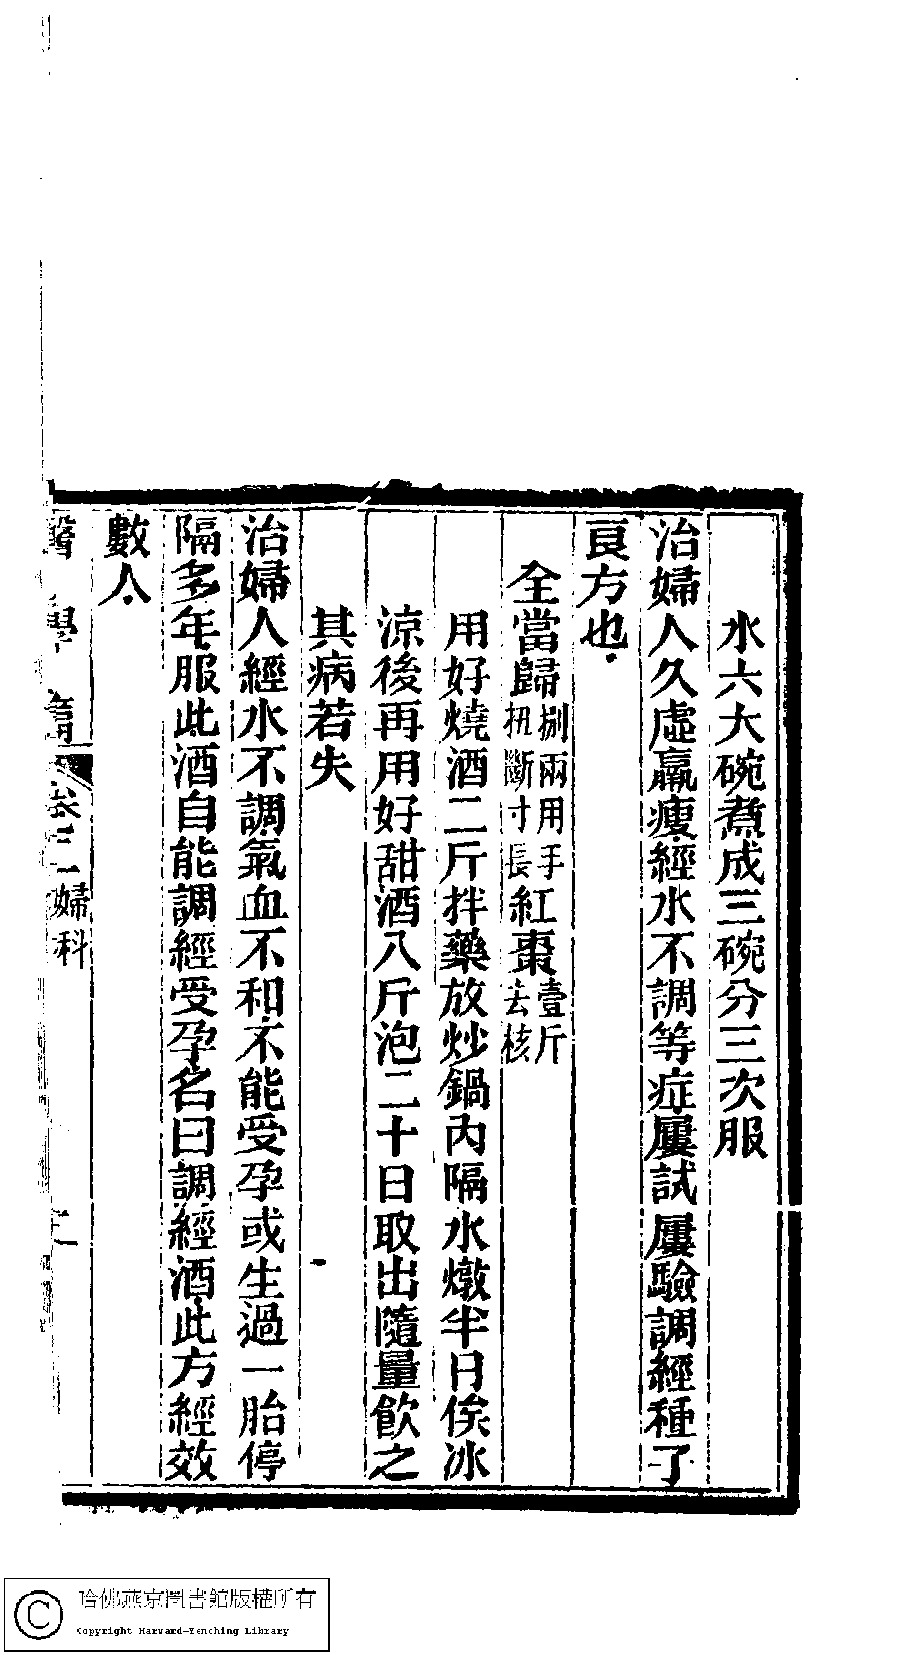 水六大碗煮成三碗分三次服
治婦人久虛羸瘦經水不調等症屢試屢驗調經種子
良方也
全當歸捌兩用手扭斷寸長紅棗壹斤去核
用好燒酒二斤拌藥放炒鍋內隔水燉半日俟冰
涼後再用好甜酒八斤泡二十日取出隨量飲之
其病若失
治婦人經水不調氣血不和不能受孕或生過一胎停
隔多年服此酒自能調經受孕名曰調經酒此方經效
數人
婦科
哈佛燕京圖書館版權所有
Copyright Harvard-Yenching Library